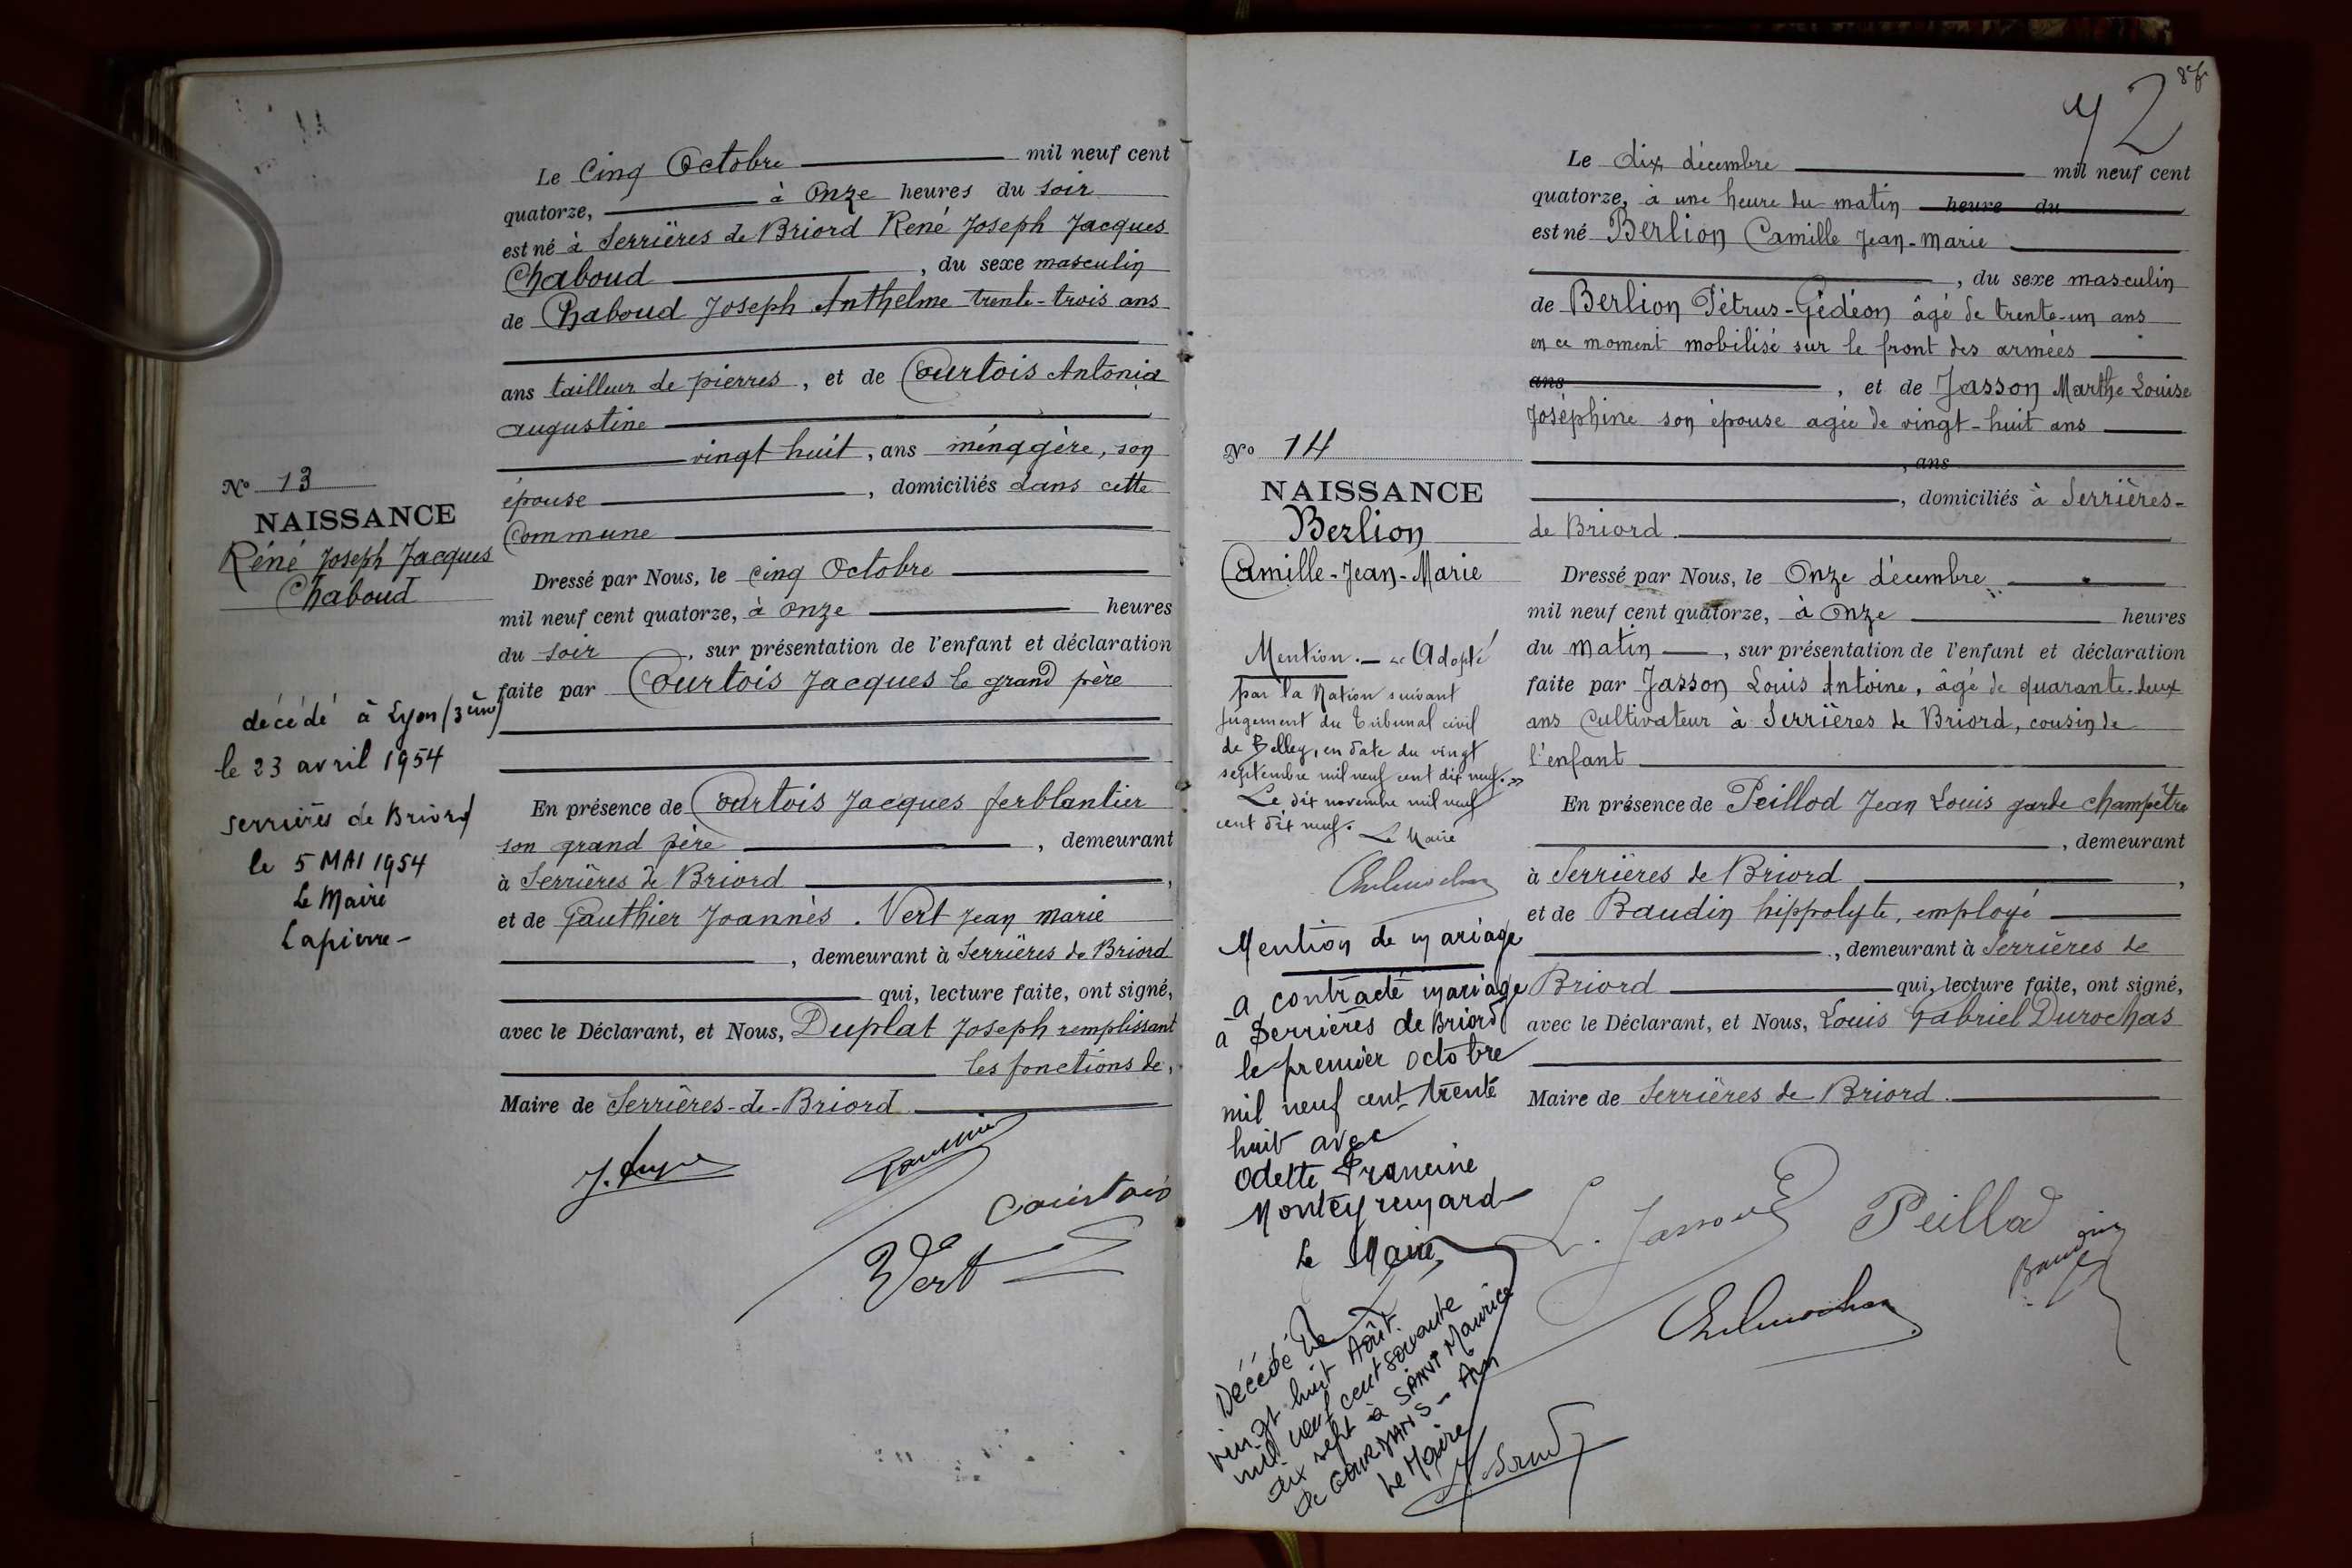 N° 13
NAISSANCE
Réné Joseph Jacques
Chaboud
décédé à Lyon (3ème)
le 23 avril 1954
Serrières de Briord
le 5 MAI 1954
Le Maire
Lapierre -
Le Cinq Octobre mil neuf cent
quatorze, à Onze heures du soir
est né à Serrières de Briord René Joseph Jacques
Chaboud , du sexe masculin
de Chaboud Joseph Anthelme trente-trois ans
ans tailleur de pierres , et de Courtois Antonia
augustine
vingt huit , ans ménagère, son
épouse , domiciliés dans cette
Commune
Dressé par Nous, le cinq Octobre
mil neuf cent quatorze, à onze heures
du soir , sur présentation de l'enfant et déclaration
faite par Courtois Jacques le grand père
En présence de Courtois Jacques ferblantier
son grand père , demeurant
à Serrières de Briord ,
et de Gauthier Joannès . Vert Jean Marie
, demeurant à Serrières de Briord
qui, lecture faite, ont signé,
avec le Déclarant, et Nous, Duplat Joseph remplissant
les fonctions de ,
Maire de Serrières-de-Briord
Gauthier
Courtois
Vert
87
72
N° 14
NAISSANCE
Berlion
Camille-Jean-Marie
Mention. — « Adopté
par la Nation suivant
jugement du Tribunal civil
de Belley, en date du vingt
septembre mil neuf cent dix neuf. »
Le dix novembre mil neuf
cent dix neuf. Le Maire
Mention de mariage
a contracté mariage
à Serrières de Briord
le premier octobre
mil neuf cent trente
huit avec
Odette Francine
Monteyremard
Le Maire,
Décédé le
vingt huit Août
mil neuf cent soixante
dix sept à SAINT Maurice
de GOURDANS - Ain
Le Maire
Le dix décembre mil neuf cent
quatorze, à une heure du matin heure du
est né Berlion Camille Jean-Marie
, du sexe masculin
de Berlion Pétrus-Gédéon âgé de trente-un ans
en ce moment mobilisé sur le front des armées
ans , et de Jasson Marthe Louise
Joséphine son épouse agée de vingt-huit ans
, ans
, domiciliés à Serrières-
de Briord
Dressé par Nous, le Onze décembre
mil neuf cent quatorze, à Onze heures
du matin , sur présentation de l'enfant et déclaration
faite par Jasson Louis Antoine, âgé de quarante-deux
ans Cultivateur à Serrières de Briord, cousin de
l'enfant
En présence de Peillod Jean Louis garde champêtre
, demeurant
à Serrières de Briord ,
et de Baudin hippolyte, employé
, demeurant à Serrières de
Briord qui, lecture faite, ont signé,
avec le Déclarant, et Nous, Louis Gabriel Durochas
Maire de Serrières de Briord
L. Jasson
Peillod
Baudin